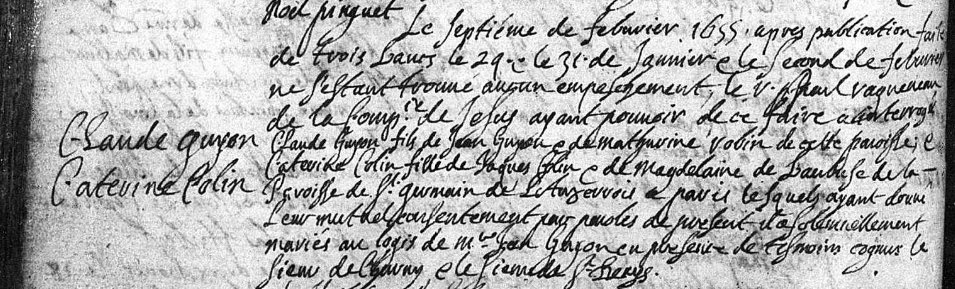 Noel pinguet
Le septième de febvrier 1655. apres publication faite
de trois bancs le 29. e le 31. de Janvier e le second de febvrier
ne s'estant trouvé aucun empeschement, le r. p. paul ragueneau
de la Comp. de Jesus ayant pouvoir de ce faire a interrogé
Claude guyon
Claude Guyon fils de Jean Guyon e de mathurine robin de cette paroisse, e
Caterine Colin
Caterine Colin fille de Jaques Colin e de Magdelaine de de la
Paroisse de St germain de L'Auzerrois a paris lesquels ayant donné
Leur mutuel consentement par paroles de present il a solemnellement
mariés au logis de mre Jean Guyon en presence de tesmoins cognus le
sieur de Charny e le sieur de St